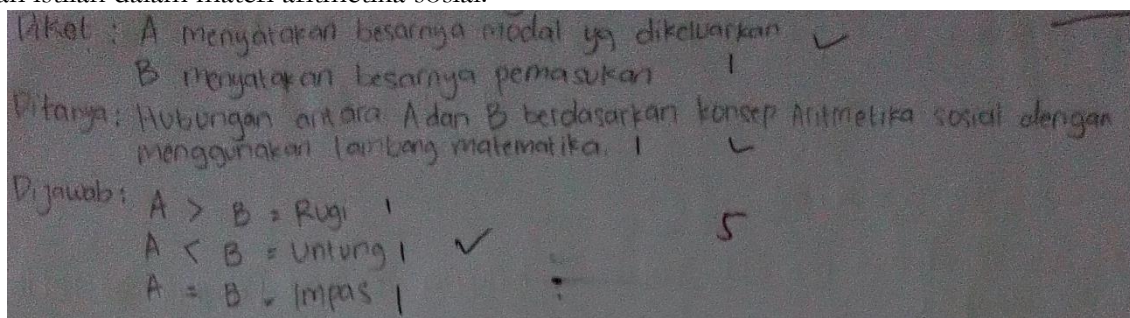 an istilah dalam materi aritmetika sosial.
Diket : A menyatakan besarnya modal yg dikeluarkan ✓
B menyatakan besarnya pemasukan 1
Ditanya : Hubungan antara A dan B berdasarkan konsep Aritmetika sosial dengan
menggunakan lambang matematika. 1 ✓
Dijawab :
A > B = Rugi 1
A < B = Untung 1 ✓ 5
A = B = Impas 1